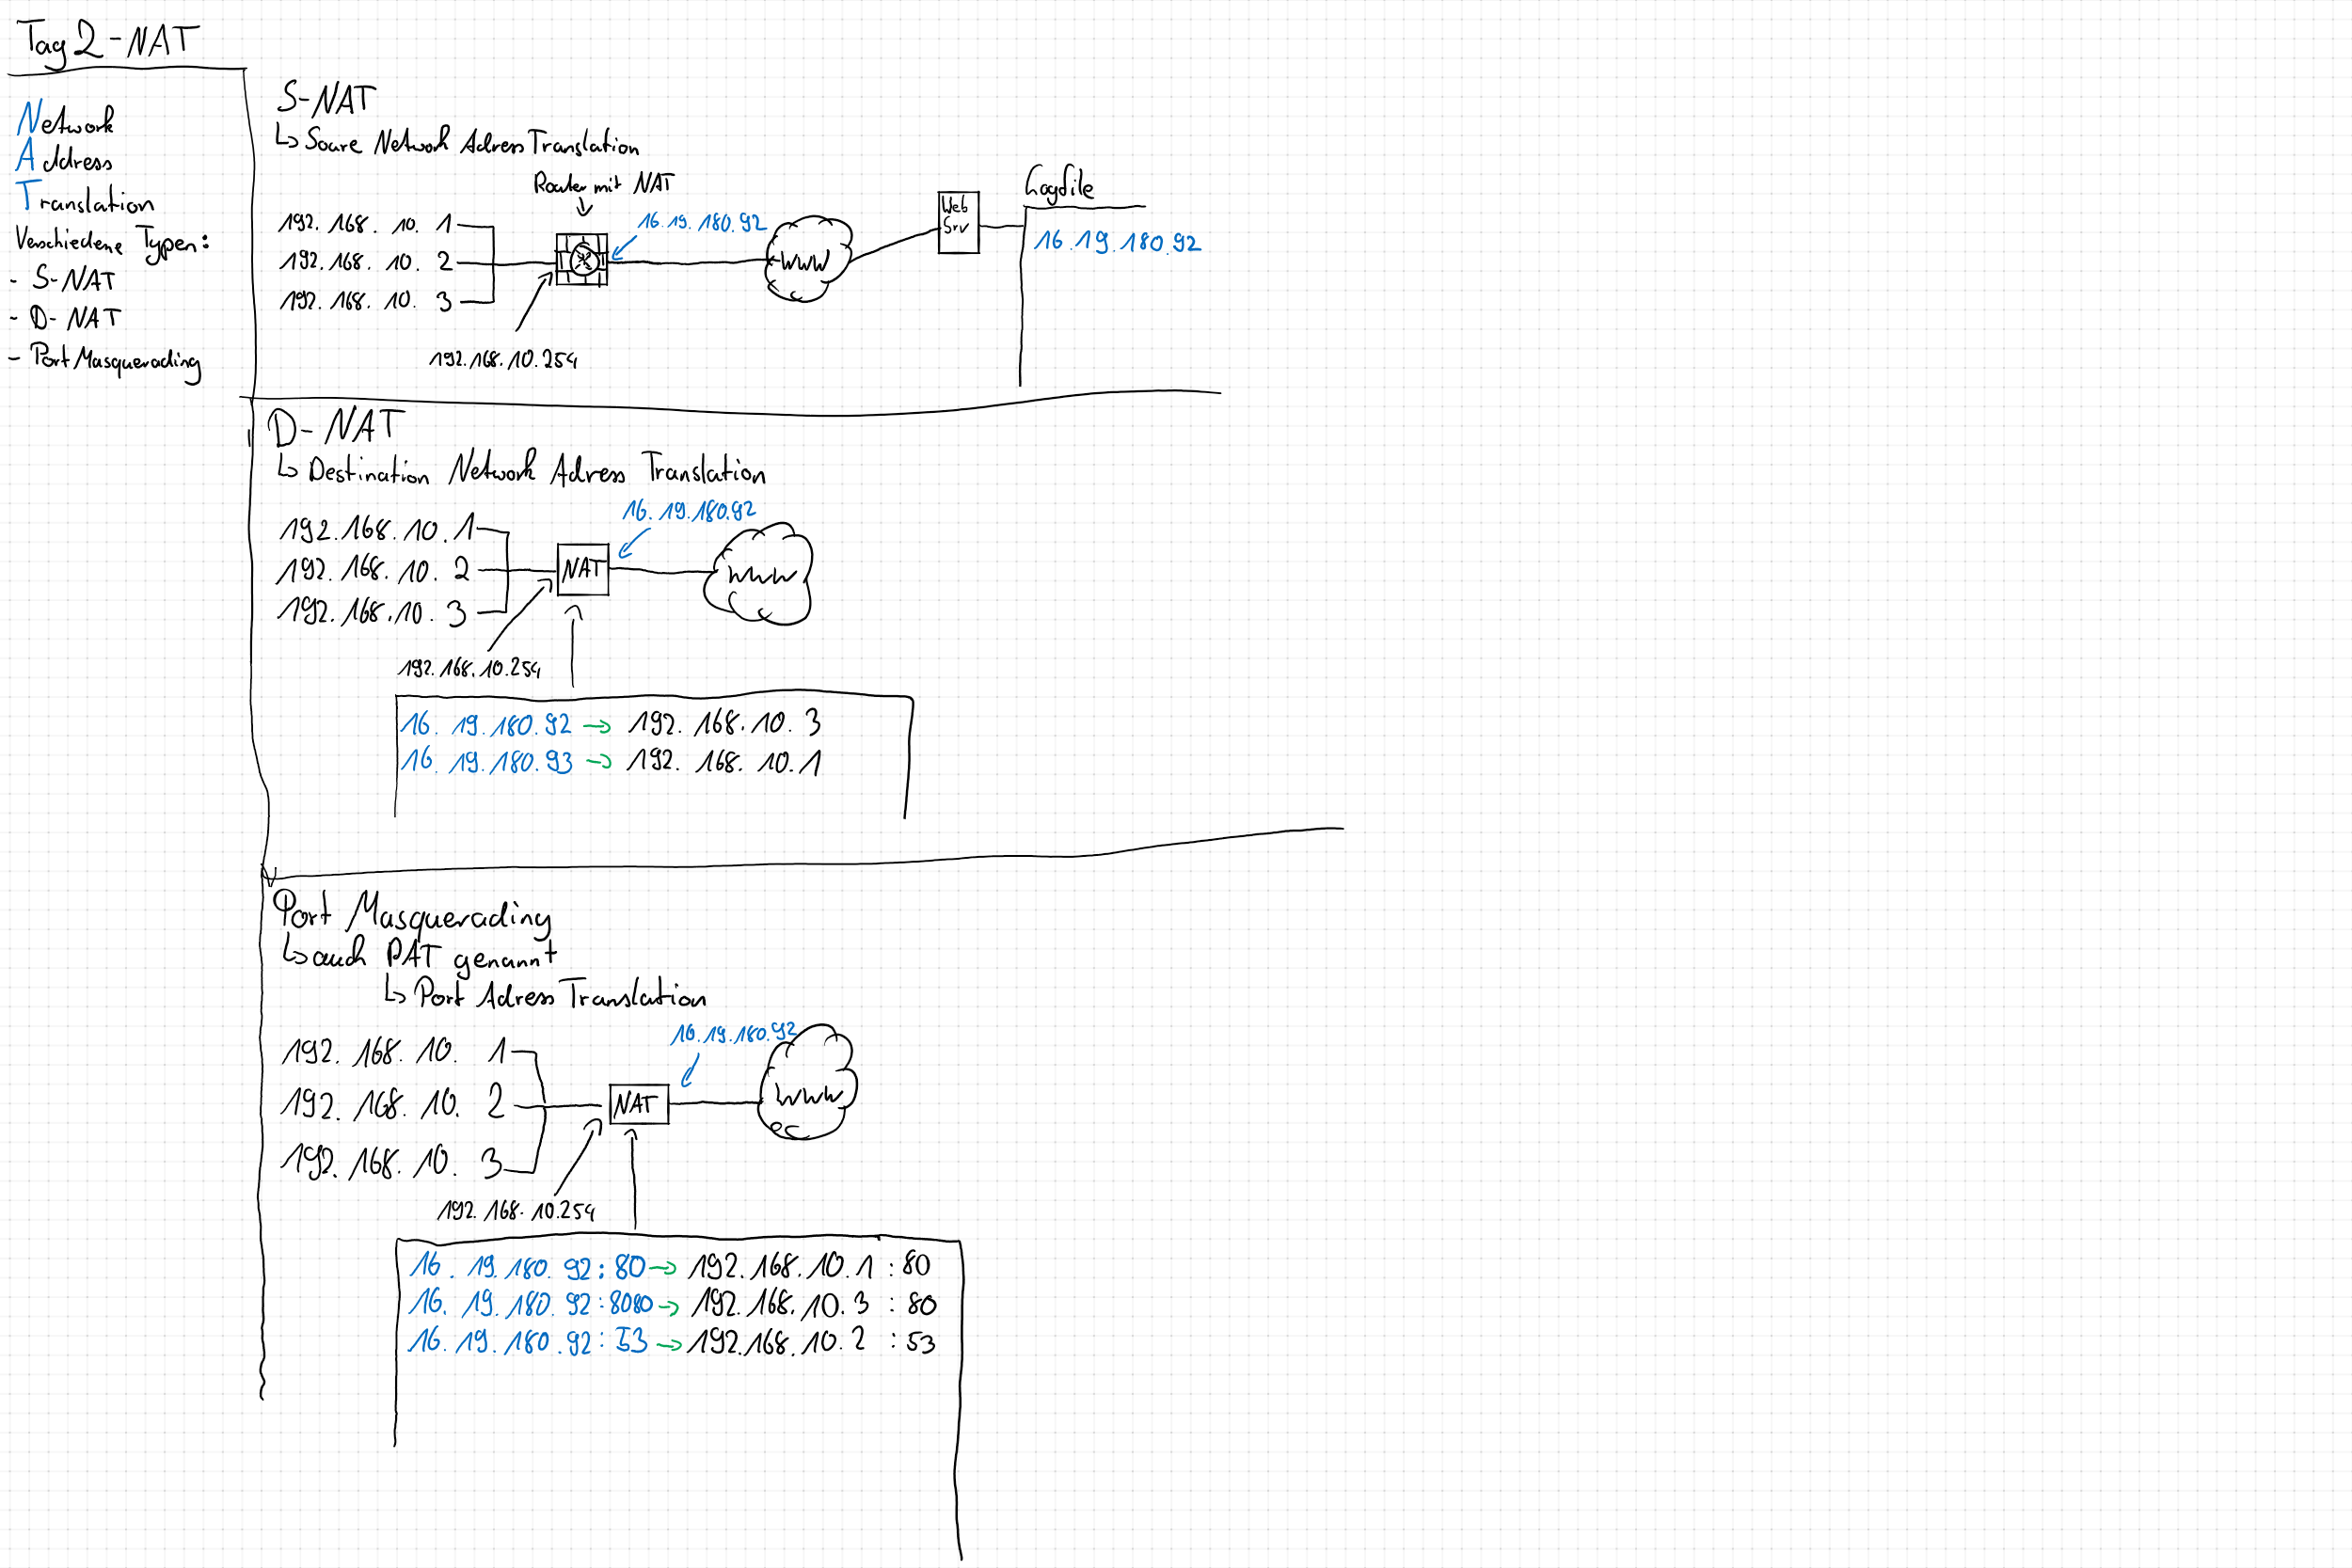 Tag 2 - NAT
Network
Address
Translation
Verschiedene Typen:
- S-NAT
- D-NAT
- Port Masquerading
S-NAT
↳ Soure Network Adress Translation
Router mit NAT
192.168.10.1
192.168.10.2
192.168.10.3
192.168.10.254
16.19.180.92
www
Web
Srv
Logfile
16.19.180.92
D-NAT
↳ Destination Network Adress Translation
16.19.180.92
192.168.10.1
192.168.10.2
192.168.10.3
NAT
www
192.168.10.254
16.19.180.92 → 192.168.10.3
16.19.180.93 → 192.168.10.1
Port Masquerading
↳ auch PAT genannt
↳ Port Adress Translation
16.19.180.92
192.168.10.1
192.168.10.2
192.168.10.3
NAT
www
192.168.10.254
16.19.180.92:80 → 192.168.10.1:80
16.19.180.92:8080 → 192.168.10.3:80
16.19.180.92:53 → 192.168.10.2:53